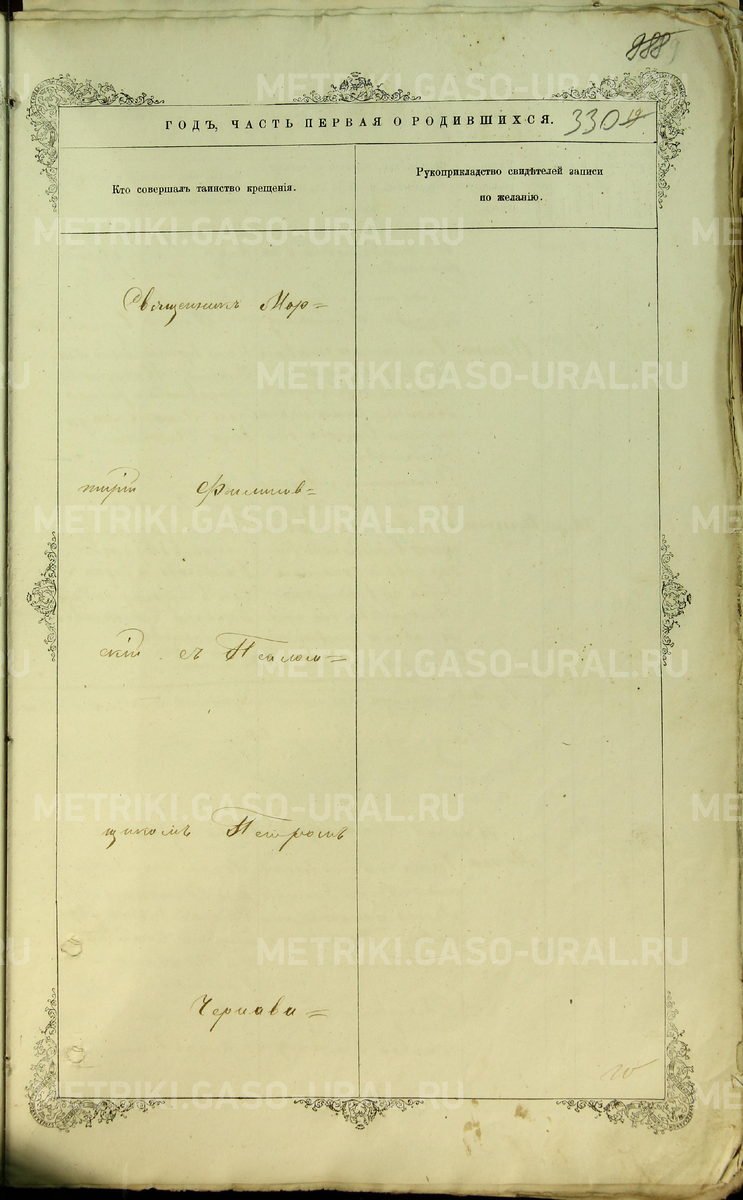 988
ГОДЪ, ЧАСТЬ ПЕРВАЯ О РОДИВШИХСЯ. 330
Кто совершалъ таинство крещенія.
Рукоприкладство свидѣтелей записи
по желанію.
Священникъ Мар=
тирій Филипов=
скій съ Псалом=
щикомъ Петромъ
METRIKI.GASO-URAL.RU
METRIKI.GASO-URAL.RU
METRIKI.GASO-URAL.RU
METRIKI.GASO-URAL.RU
METRIKI.GASO-URAL.RU
METRIKI.GASO-URAL.RU
METRIKI.GASO-URAL.RU
METRIKI.GASO-URAL.RU